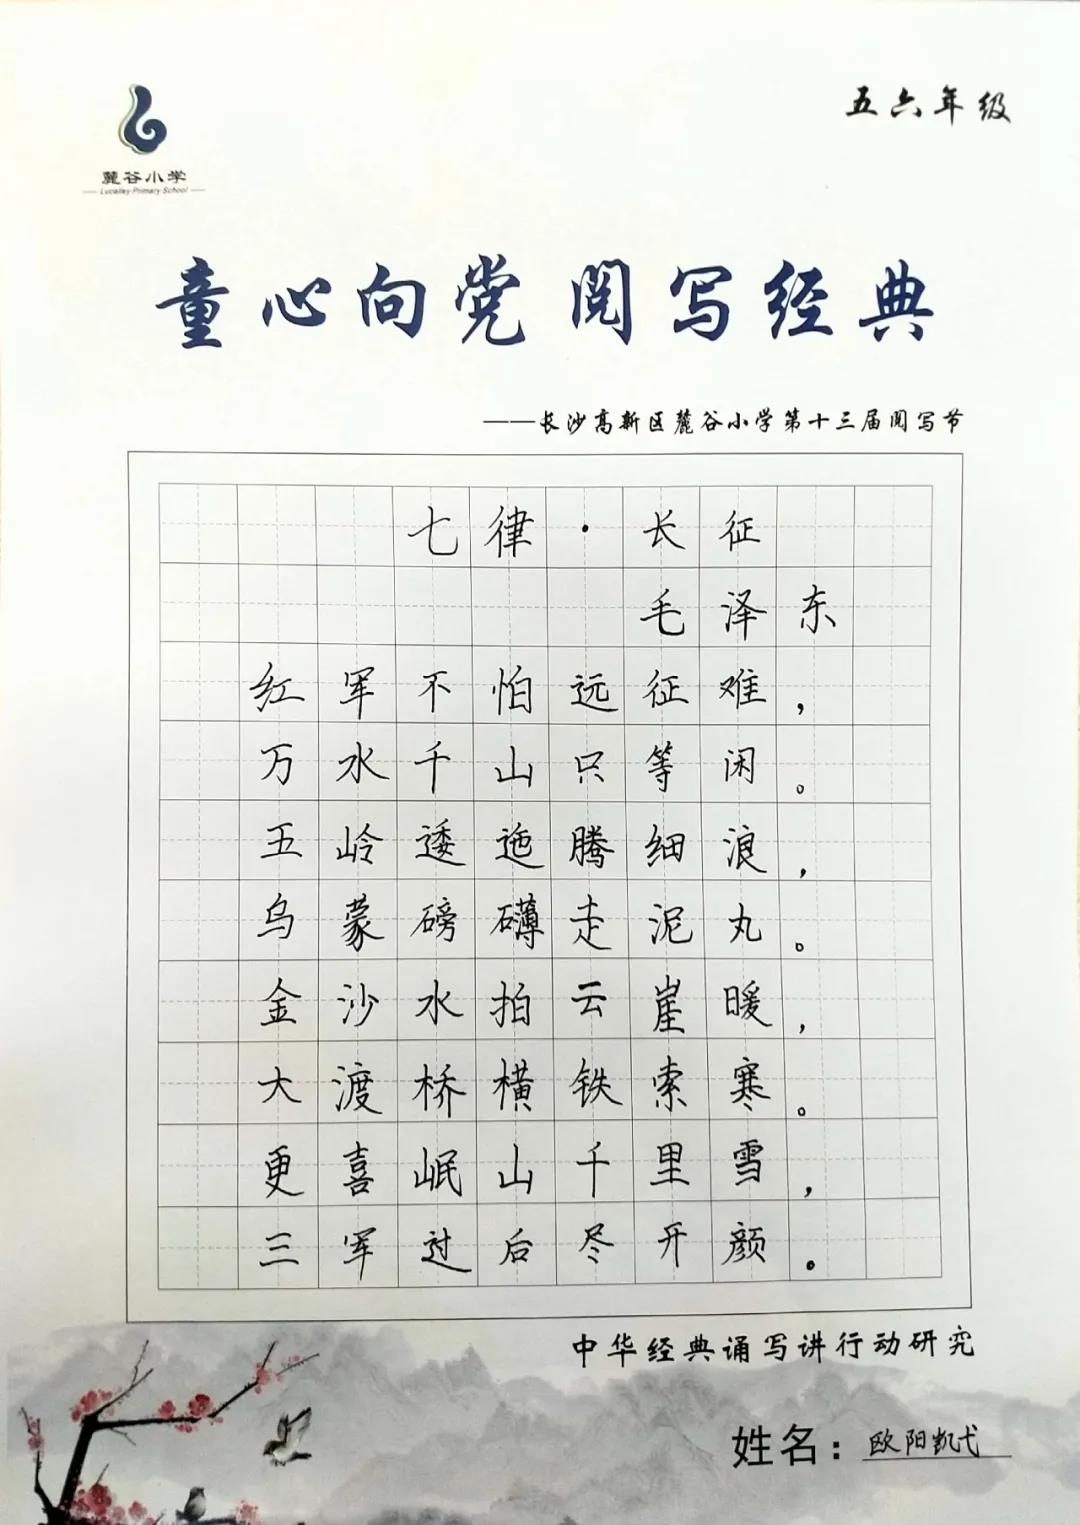 五六年级
麓谷小学
Lucalley Primary School
童心向党 阅写经典
——长沙高新区麓谷小学第十三届阅写节
七律·长征
毛泽东
红军不怕远征难，
万水千山只等闲。
五岭逶迤腾细浪，
乌蒙磅礴走泥丸。
金沙水拍云崖暖，
大渡桥横铁索寒。
更喜岷山千里雪，
三军过后尽开颜。
中华经典诵写讲行动研究
姓名：欧阳凯弋